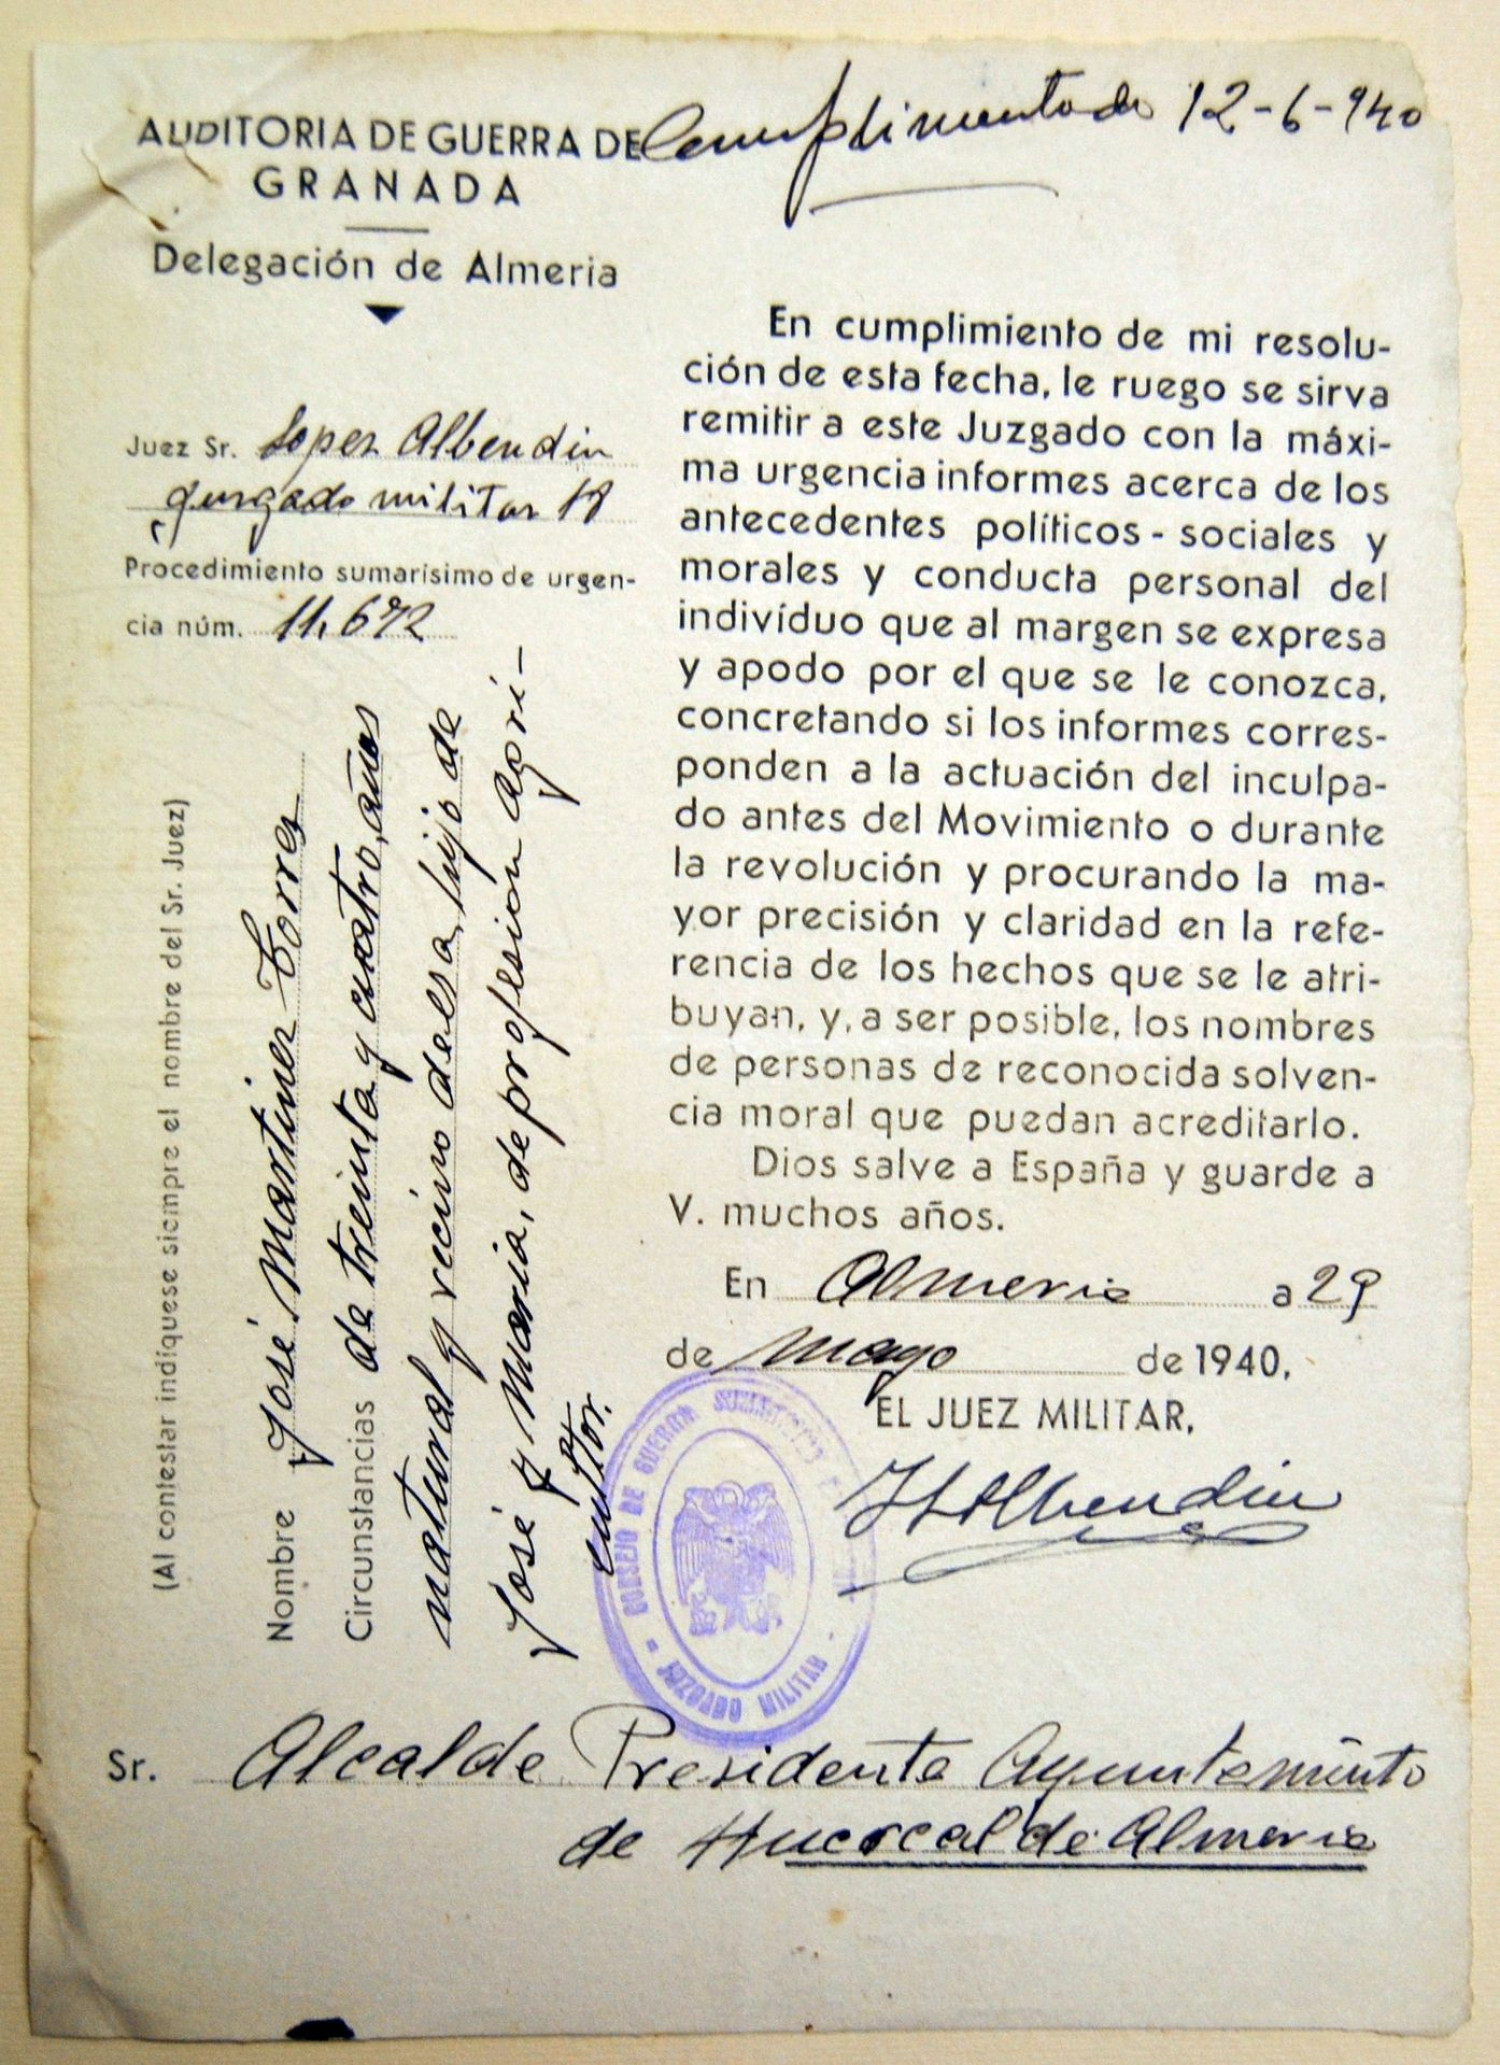 AUDITORIA DE GUERRA DE
GRANADA
Delegación de Almeria
Cumplimentado 12-6-940
Juez Sr. Lopez Albendin
Juzgado militar
Procedimiento sumarísimo de urgen-
cia núm. 11.672
(Al contestar indíquese siempre el nombre del Sr. Juez)
Nombre José Martinez Torres
Circunstancias de treinta y cuatro, años
natural y vecino de esa, hijo de
José y Maria, de profesión agri-
cultor.
En cumplimiento de mi resolu-
ción de esta fecha, le ruego se sirva
remitir a este Juzgado con la máxi-
ma urgencia informes acerca de los
antecedentes políticos - sociales y
morales y conducta personal del
indivíduo que al margen se expresa
y apodo por el que se le conozca,
concretando si los informes corres-
ponden a la actuación del inculpa-
do antes del Movimiento o durante
la revolución y procurando la ma-
yor precisión y claridad en la refe-
rencia de los hechos que se le atri-
buyan, y, a ser posible, los nombres
de personas de reconocida solven-
cia moral que puedan acreditarlo.
Dios salve a España y guarde a
V. muchos años.
En Almeria a 29
de Mayo de 1940.
EL JUEZ MILITAR,
Albendin
CONSEJO DE GUERRA
JUZGADO MILITAR
Sr. Alcalde Presidente Ayuntamiento
de Huercal de Almeria